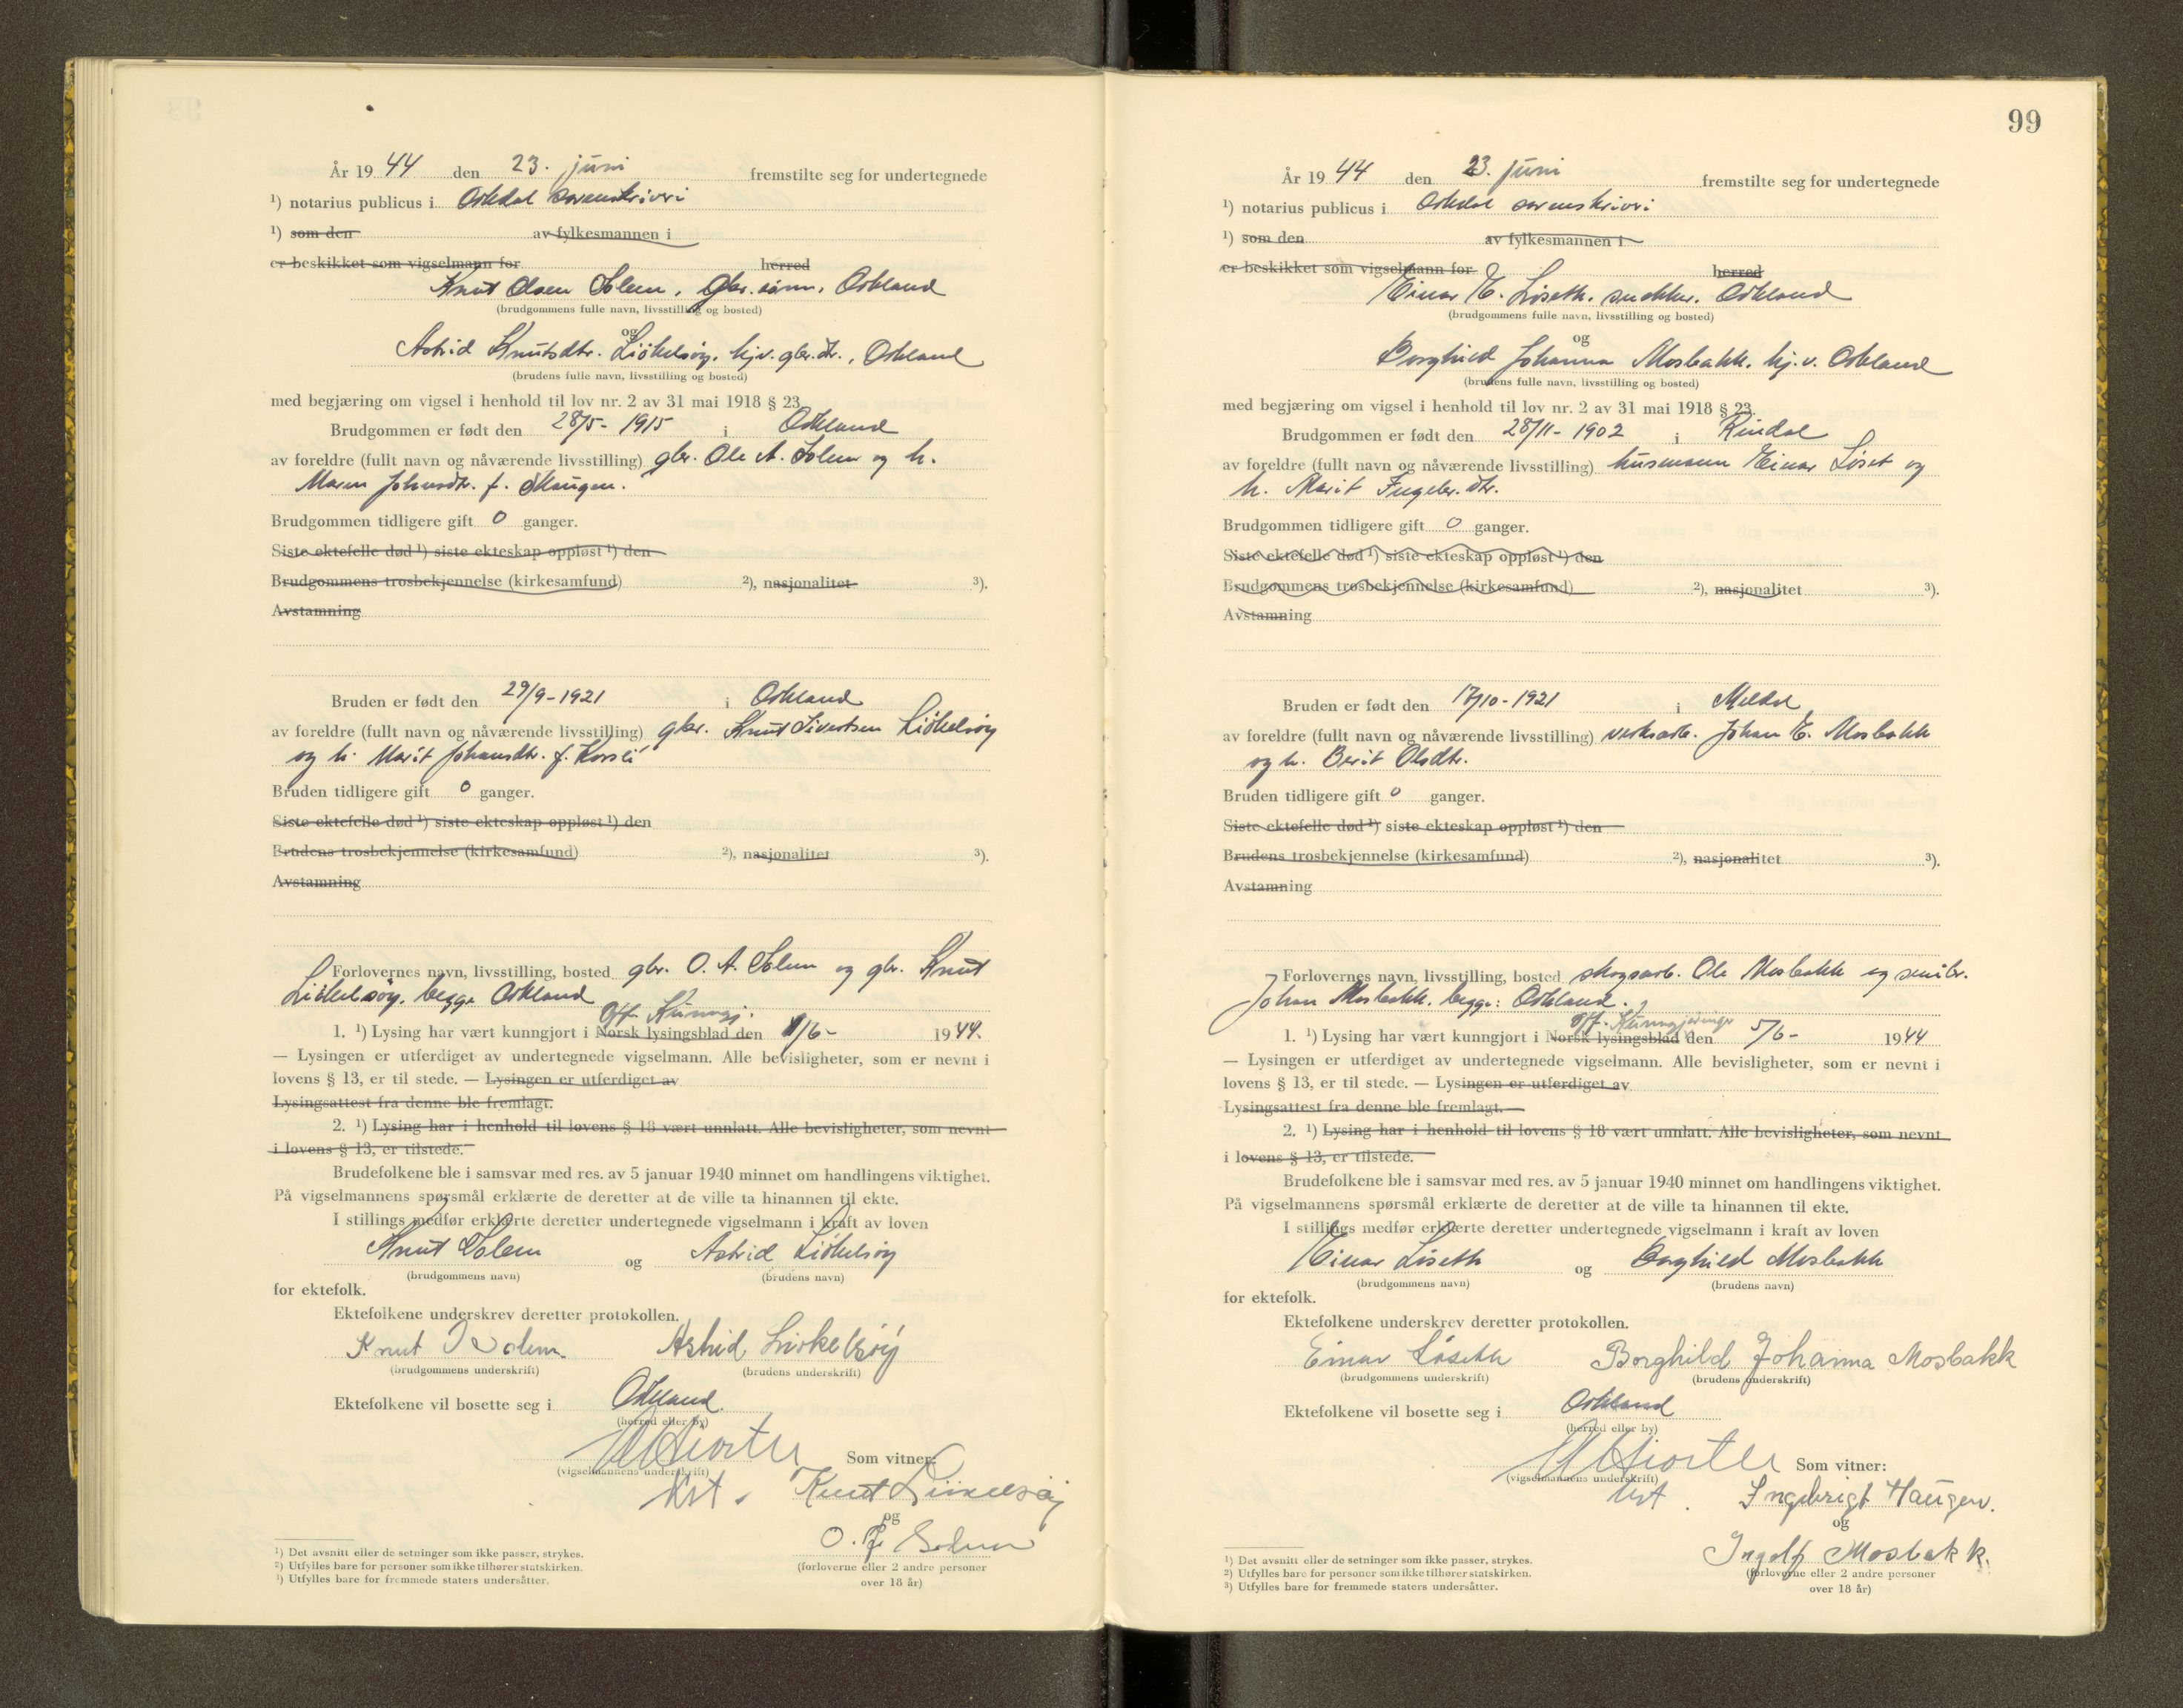 År 19 44 den 23. juni fremstilte seg for undertegnede
¹) notarius publicus i Orkdal sorenskriveri
¹) som den av fylkesmannen i
er beskikket som vigselmann for herred
Knut Olsen Solem, gbr. sønn, Orkland
(brudgommens fulle navn, livsstilling og bosted)
og
Astrid Knutsdtr. Liökelsöy, hj.v. gbr.dtr., Orkland
(brudens fulle navn, livsstilling og bosted)
med begjæring om vigsel i henhold til lov nr. 2 av 31 mai 1918 § 23.
Brudgommen er født den 28/5- 1915 i Orkland
av foreldre (fullt navn og nåværende livsstilling) gbr. Ole A. Solem og h.
Maren Johnsdtr. f. Skaugen.
Brudgommen tidligere gift 0 ganger.
Siste ektefelle død ¹) siste ekteskap oppløst ¹) den
Brudgommens trosbekjennelse (kirkesamfund) ²), nasjonalitet ³).
Avstamning
Bruden er født den 29/9-1921 i Orkland
av foreldre (fullt navn og nåværende livsstilling) gbr. Knut Sivertsen Liökelsöy
og h. Marit Johansdtr. f. Korsli
Bruden tidligere gift 0 ganger.
Siste ektefelle død ¹) siste ekteskap oppløst ¹) den
Brudens trosbekjennelse (kirkesamfund) ²), nasjonalitet ³).
Avstamning
Forlovernes navn, livsstilling, bosted gbr. O. A. Solem og gbr. Knut
Liökelsöy, begge Orkland
Off. Kunngj.
1. ¹) Lysing har vært kunngjort i Norsk lysingsblad den /6- 1944.
— Lysingen er utferdiget av undertegnede vigselmann. Alle bevisligheter, som er nevnt i
lovens § 13, er til stede. — Lysingen er utferdiget av
Lysingsattest fra denne ble fremlagt.
2. ¹) Lysing har i henhold til lovens § 18 vært unnlatt. Alle bevisligheter, som nevnt
i lovens § 13, er tilstede.
Brudefolkene ble i samsvar med res. av 5 januar 1940 minnet om handlingens viktighet.
På vigselmannens spørsmål erklærte de deretter at de ville ta hinannen til ekte.
I stillings medfør erklærte deretter undertegnede vigselmann i kraft av loven
Knut Solem og Astrid Liökelsöy
(brudgommens navn) (brudens navn)
for ektefolk.
Ektefolkene underskrev deretter protokollen.
Knut Solem Astrid Liökelsöy
(brudgommens underskrift) (brudens underskrift)
Ektefolkene vil bosette seg i Orkland
(herred eller by)
Som vitner:
(vigselmannens underskrift)
Knut Liökelsöy
og
O. Solem
(forloverne eller 2 andre personer
over 18 år)
¹) Det avsnitt eller de setninger som ikke passer, strykes.
²) Utfylles bare for personer som ikke tilhører statskirken.
³) Utfylles bare for fremmede staters undersåtter.
99
År 19 44 den 23. juni fremstilte seg for undertegnede
¹) notarius publicus i Orkdal sorenskriveri
¹) som den av fylkesmannen i
er beskikket som vigselmann for herred
Einar E. Løseth, snekker, Orkland
(brudgommens fulle navn, livsstilling og bosted)
og
Borghild Johanna Mosbakk, hj.v. Orkland
(brudens fulle navn, livsstilling og bosted)
med begjæring om vigsel i henhold til lov nr. 2 av 31 mai 1918 § 23.
Brudgommen er født den 28/11- 1902 i Rindal
av foreldre (fullt navn og nåværende livsstilling) husmann Einar Løset og
h. Marit Ingebr.dtr.
Brudgommen tidligere gift 0 ganger.
Siste ektefelle død ¹) siste ekteskap oppløst ¹) den
Brudgommens trosbekjennelse (kirkesamfund) ²), nasjonalitet ³).
Avstamning
Bruden er født den 17/10-1921 i Meldal
av foreldre (fullt navn og nåværende livsstilling) verksarb. Johan E. Mosbakk
og h. Berit Olsdtr.
Bruden tidligere gift 0 ganger.
Siste ektefelle død ¹) siste ekteskap oppløst ¹) den
Brudens trosbekjennelse (kirkesamfund) ²), nasjonalitet ³).
Avstamning
Forlovernes navn, livsstilling, bosted skogsarb. Ole Mosbakk og
Johan Mosbakk, begge: Orkland.
Off. Kunngjøringer
1. ¹) Lysing har vært kunngjort i Norsk lysingsblad den 5/6- 1944
— Lysingen er utferdiget av undertegnede vigselmann. Alle bevisligheter, som er nevnt i
lovens § 13, er til stede. — Lysingen er utferdiget av
Lysingsattest fra denne ble fremlagt.
2. ¹) Lysing har i henhold til lovens § 18 vært unnlatt. Alle bevisligheter, som nevnt
i lovens § 13, er tilstede.
Brudefolkene ble i samsvar med res. av 5 januar 1940 minnet om handlingens viktighet.
På vigselmannens spørsmål erklærte de deretter at de ville ta hinannen til ekte.
I stillings medfør erklærte deretter undertegnede vigselmann i kraft av loven
Einar Løseth og Borghild Mosbakk
(brudgommens navn) (brudens navn)
for ektefolk.
Ektefolkene underskrev deretter protokollen.
Einar Løseth Borghild Johanna Mosbakk
(brudgommens underskrift) (brudens underskrift)
Ektefolkene vil bosette seg i Orkland
(herred eller by)
Som vitner:
(vigselmannens underskrift)
Ingebrigt Haugen.
og
Ingolf Mosbakk.
(forloverne eller 2 andre personer
over 18 år)
¹) Det avsnitt eller de setninger som ikke passer, strykes.
²) Utfylles bare for personer som ikke tilhører statskirken.
³) Utfylles bare for fremmede staters undersåtter.